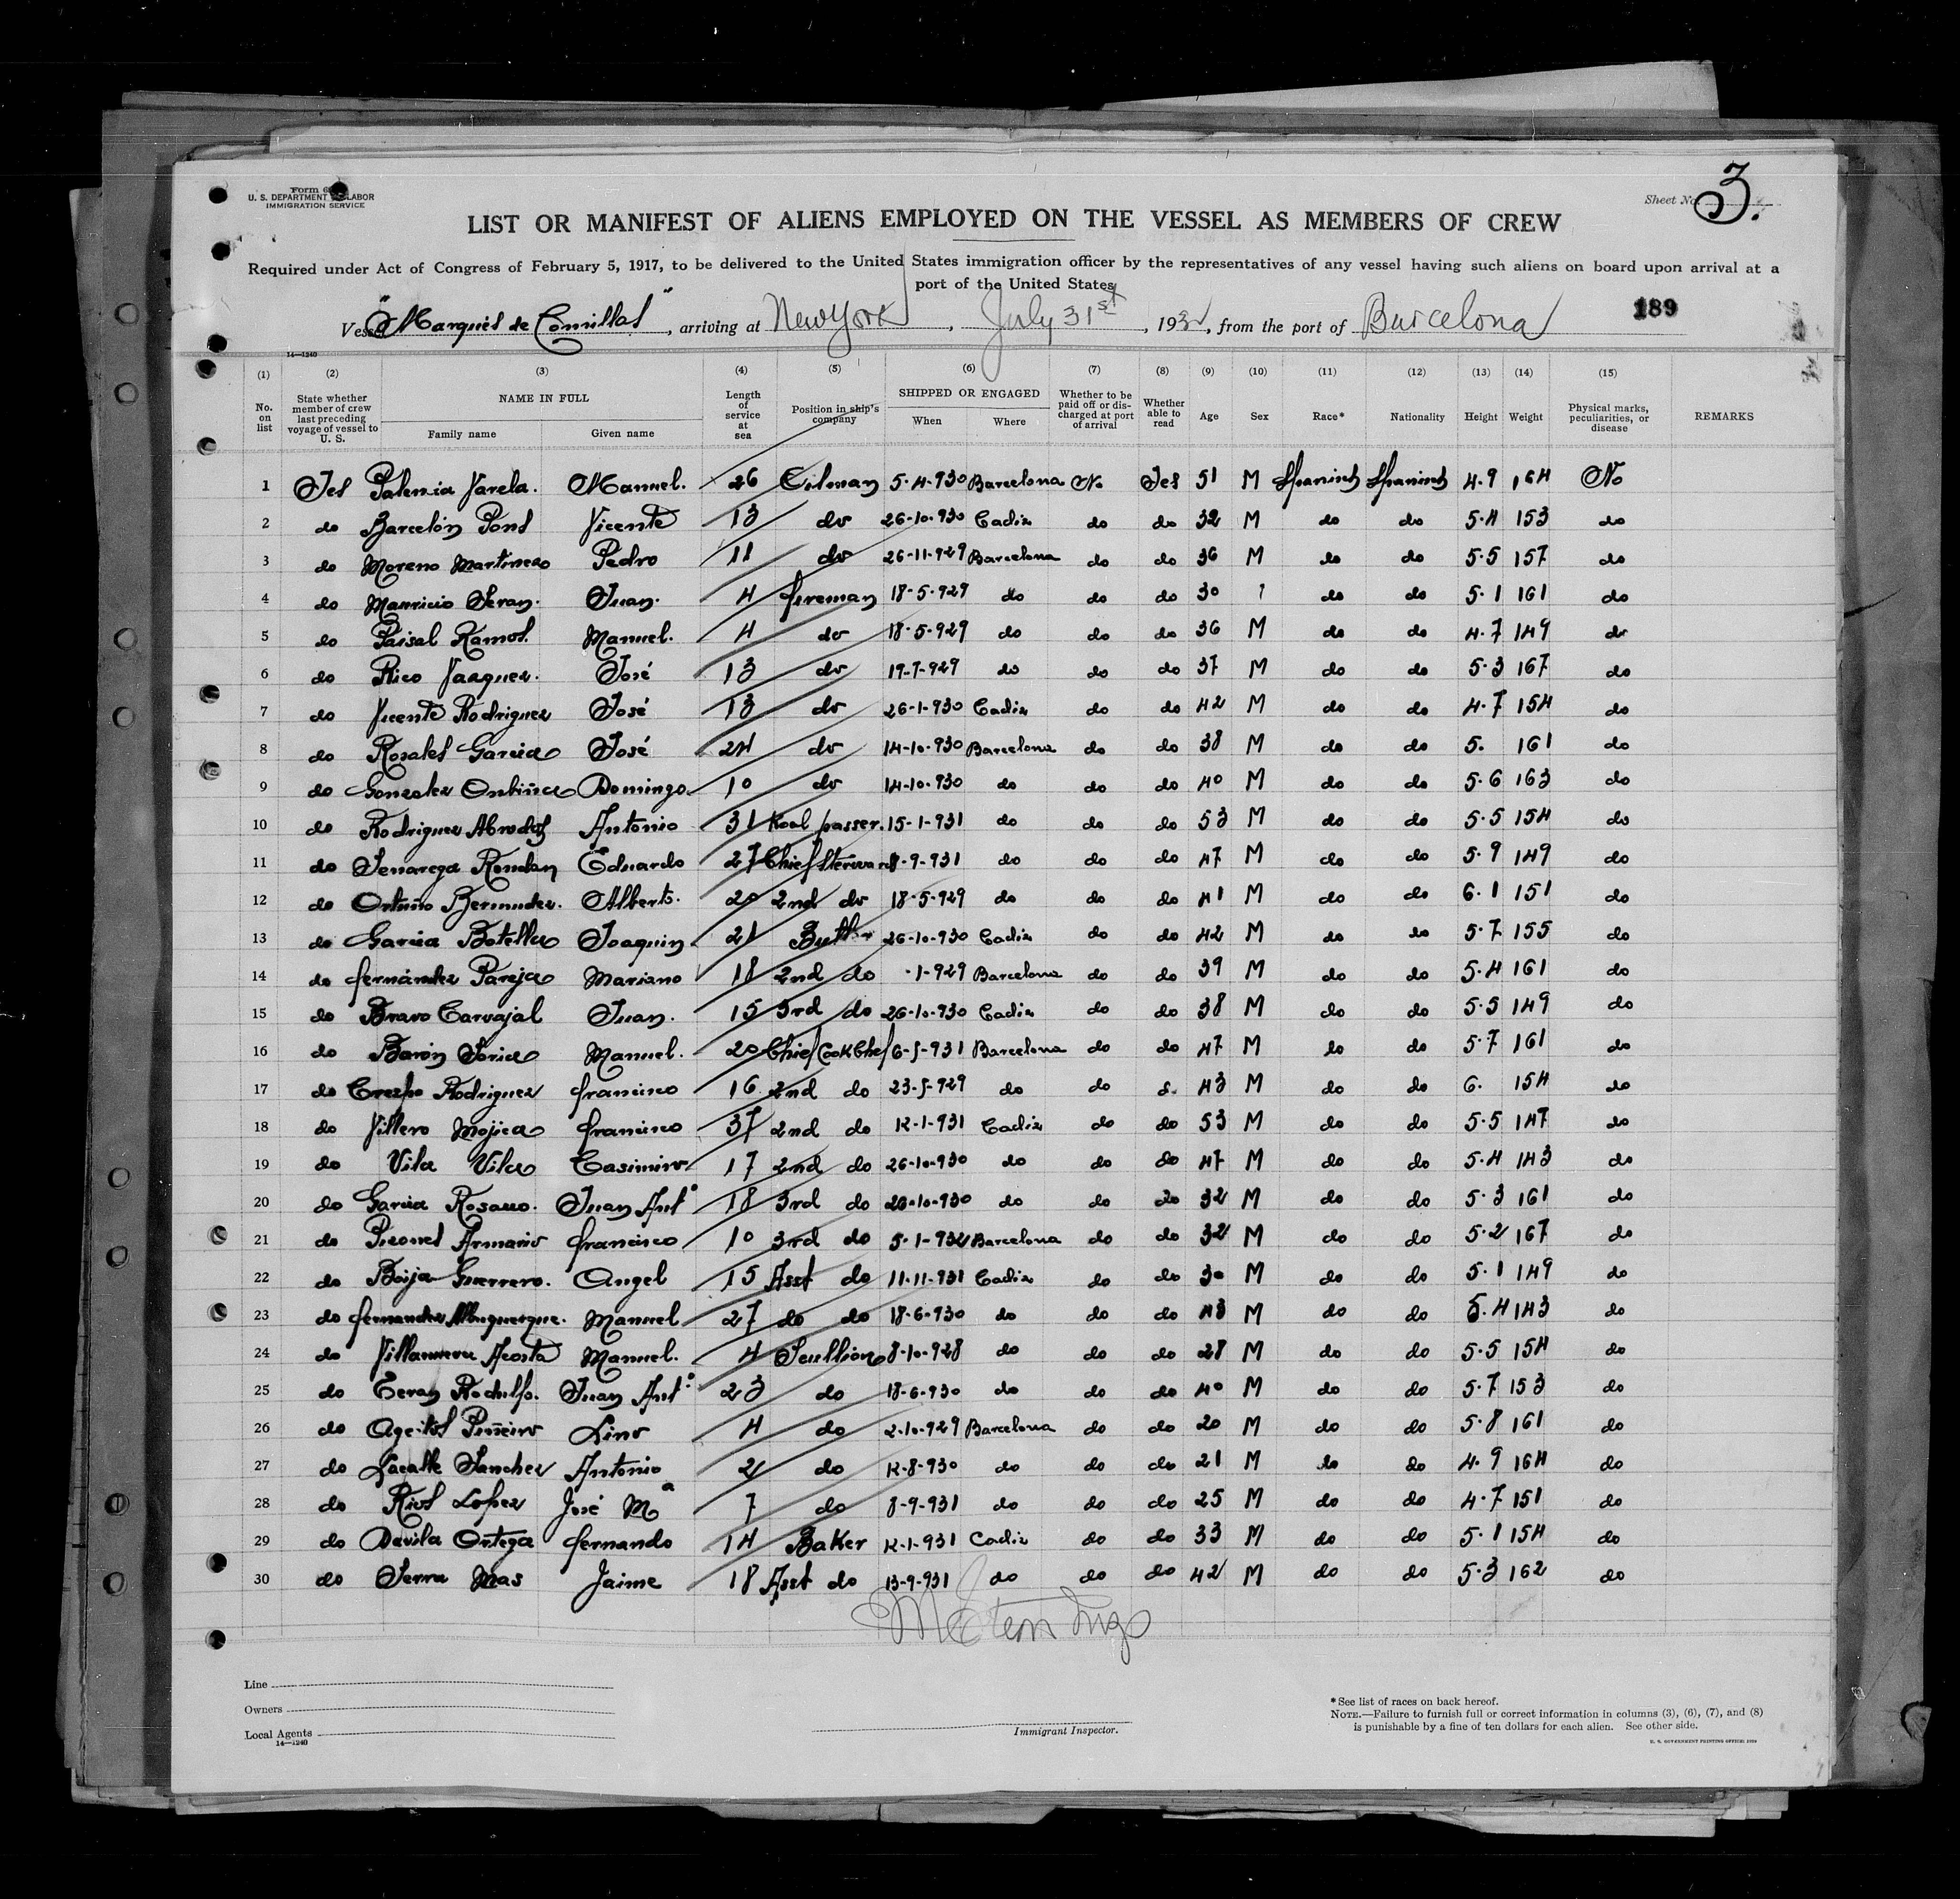 Form 6
U. S. DEPARTMENT OF LABOR
IMMIGRATION SERVICE
Sheet No. 3.
LIST OR MANIFEST OF ALIENS EMPLOYED ON THE VESSEL AS MEMBERS OF CREW
Required under Act of Congress of February 5, 1917, to be delivered to the United States immigration officer by the representatives of any vessel having such aliens on board upon arrival at a
port of the United States
Vessel "Marqués de Comillas", arriving at New York, July 31st, 1932, from the port of Barcelona 189
14—1240
(1) (2) (3) (4) (5) (6) (7) (8) (9) (10) (11) (12) (13) (14) (15)
No. on list State whether member of crew last preceding voyage of vessel to U. S. NAME IN FULL Family name Given name Length of service at sea Position in ship's company SHIPPED OR ENGAGED When Where Whether to be paid off or discharged at port of arrival Whether able to read Age Sex Race* Nationality Height Weight Physical marks, peculiarities, or disease REMARKS
1 Yes Palencia Varela. Manuel. 26 Oilman 5-4-930 Barcelona No Yes 51 M Spanish Spanish 4.9 164 No
2 do Barcelón Pons Vicente 13 do 26-10-930 Cadiz do do 32 M do do 5.4 153 do
3 do Moreno Martinez Pedro 11 do 26-11-929 Barcelona do do 36 M do do 5.5 157 do
4 do Mauricio Juan. 4 fireman 18-5-929 do do do 30 do do 5.1 161 do
5 do Ramos. Manuel. 4 do 18-5-929 do do do 36 M do do 4.7 149 do
6 do Rico Vazquez. José 13 do 17-7-929 do do do 37 M do do 5.3 167 do
7 do Vicente Rodriguez José 13 do 26-1-930 Cadiz do do 42 M do do 4.7 154 do
8 do Rosales Garcia José 24 do 14-10-930 Barcelona do do 38 M do do 5. 161 do
9 do Gonzalez Domingo. 10 do 14-10-930 do do do 40 M do do 5.6 163 do
10 do Rodriguez Antonio 31 Koal passer. 15-1-931 do do do 53 M do do 5.5 154 do
11 do Senarega Rendan Eduardo 27 Chief Steward 8-9-931 do do do 47 M do do 5.9 149 do
12 do Ortuño Bermudez. Alberto. 20 2nd do 18-5-929 do do do 41 M do do 6.1 151 do
13 do Garcia Botella Joaquin. 21 26-10-930 Cadiz do do 42 M do do 5.7 155 do
14 do fernández Pareja Mariano 18 2nd do -1-929 Barcelona do do 39 M do do 5.4 161 do
15 do Bravo Carvajal Juan. 15 3rd do 26-10-930 Cadiz do do 38 M do do 5.5 149 do
16 do Barón Soria Manuel. 20 Chief Cook Chef 6-5-931 Barcelona do do 47 M do do 5.7 161 do
17 do Crespo Rodriguez francisco 16 2nd do 23-5-929 do do d. 43 M do do 6. 154 do
18 do Villero Mojica francisco 37 2nd do 12-1-931 Cadiz do do 53 M do do 5.5 147 do
19 do Vila Vila Casimiro 17 2nd do 26-10-930 do do do 47 M do do 5.4 143 do
20 do Garcia Juan Antº 18 3rd do 26-10-930 do do do 32 M do do 5.3 161 do
21 do Armario francisco 10 3rd do 5-1-932 Barcelona do do 32 M do do 5.2 167 do
22 do Guerrero. Angel 15 Asst do 11-11-931 Cadiz do do 30 M do do 5.1 149 do
23 do fernandez Alburquerque. Manuel 27 do do 18-6-930 do do do 43 M do do 5.4 143 do
24 do Villanueva Acosta Manuel. 4 Scullion 8-10-928 do do do 28 M do do 5.5 154 do
25 do Teran Rodulfo. Juan Antº 23 do 18-6-930 do do do 40 M do do 5.7 153 do
26 do Ageitos Piñeiro Lino 4 do 2-10-929 Barcelona do do 20 M do do 5.8 161 do
27 do Lacalle Sanchez Antonio 2 do 12-8-930 do do do 21 M do do 4.9 164 do
28 do Rios Lopez José Mª 7 do 8-9-931 do do do 25 M do do 4.7 151 do
29 do Davila Ortega fernando 14 Baker 12-1-931 Cadiz do do 33 M do do 5.1 154 do
30 do Serra Mas Jaime 18 Asst do 13-9-931 do do do 42 M do do 5.3 162 do
Line
Owners
Local Agents
14—1240
Immigrant Inspector.
*See list of races on back hereof.
NOTE.—Failure to furnish full or correct information in columns (3), (6), (7), and (8)
is punishable by a fine of ten dollars for each alien. See other side.
U. S. GOVERNMENT PRINTING OFFICE: 1929